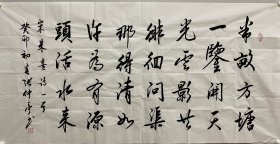 半畝方塘
一鑒開天
光雲影共
徘徊問渠
那得清如
許為有源
頭活水来
宋朱熹詩一首
癸卯初